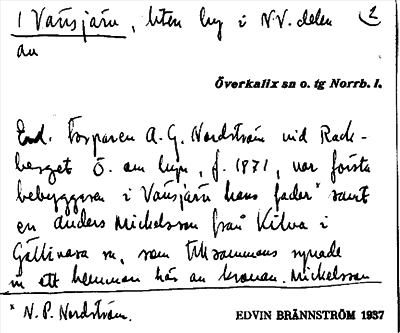 1 Vänsjärv, liten by i N.V. delen 2
av
Överkalix sn o. tg Norrb. l.
Enl. Torparen A. G. Nordström vid Rack-
berget Ö. om byn, f. 1871, var första
bebyggaren i Vänsjärv hans fader x samt
en Anders Mickelsson från Kilva i
Gällivara sn, som tillsammans synade
in ett hemman här av kronan. Mickelsson
x N. P. Nordström.
EDVIN BRÄNNSTRÖM 1937